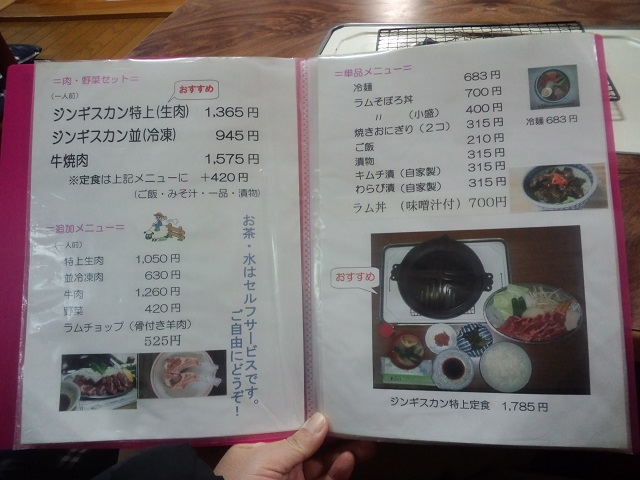 ＝肉・野菜セット＝
（一人前）
おすすめ
ジンギスカン特上（生肉） 1,365円
ジンギスカン並（冷凍） 945円
牛焼肉 1,575円
※定食は上記メニューに ＋420円
（ご飯・みそ汁・一品・漬物）
＝追加メニュー＝
（一人前）
特上生肉 1,050円
並冷凍肉 630円
牛肉 1,260円
野菜 420円
ラムチョップ（骨付き羊肉）
525円
お茶・水はセルフサービスです。
ご自由にどうぞ！
＝単品メニュー＝
冷麺 683円
ラムそぼろ丼 700円
〃 （小盛） 400円
焼きおにぎり（２コ） 315円
ご飯 210円
漬物 315円
キムチ漬（自家製） 315円
わらび漬（自家製） 315円
ラム丼 （味噌汁付） 700円
冷麺 683円
おすすめ
ジンギスカン特上定食 1,785円